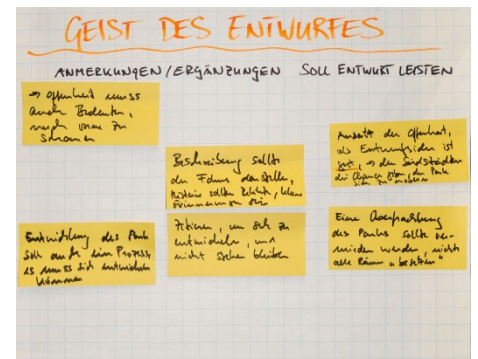 GEIST DES ENTWURFES
ANMERKUNGEN/ERGÄNZUNGEN SOLL ENTWURF LEISTEN
→ offenheit muss
auch bedeuten,
nach vorne zu
schauen
Beschreibung sollte
den Fokus darstellen,
Historie sollten Relikte,
Erinnerungen sein
Ansatz der Offenheit,
als Entwurfsidee ist
gut, → den
die Chance geben, den Park
sich zu
Entwicklung des Parks
soll auch ein Prozess,
es muss sich entwickeln
können
um sich zu
entwickeln, und
nicht stehen bleiben
Eine Überfrachtung
des Parks sollte ver-
mieden werden, nicht
alle Räume „besetzen"